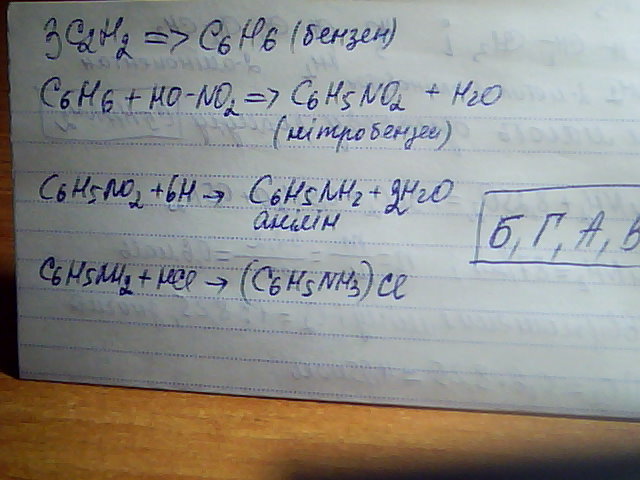 3C2H2 => C6H6 (бензен)
C6H6 + HO-NO2 => C6H5NO2 + H2O
(нітробензен)
C6H5NO2 + 6H → C6H5NH2 + 2H2O
анілін
Б, Г, А, В
C6H5NH2 + HCl → (C6H5NH3)Cl